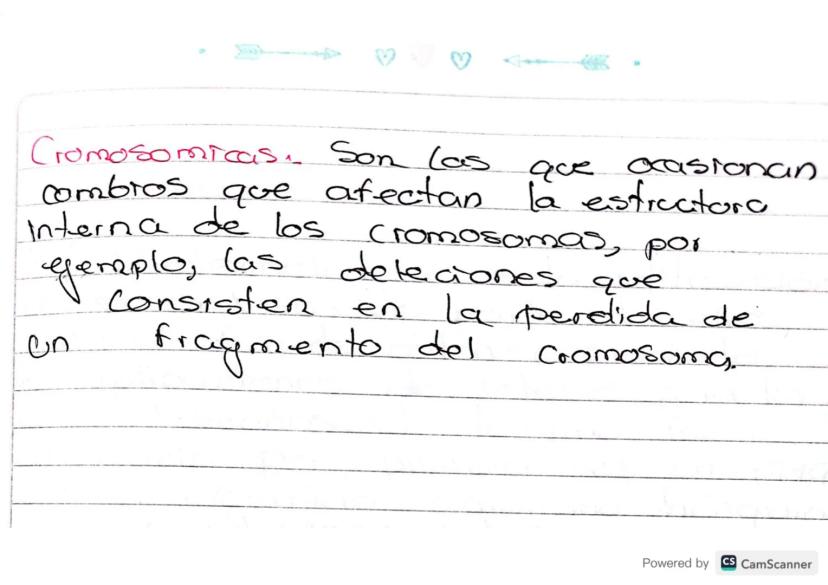 Cromosomicas. Son las que ocasionan
cambios que afectan la estructura
interna de los cromosomas, por
ejemplo, las deleciones que
consisten en la perdida de
un fragmento del cromosoma.
Powered by CS CamScanner